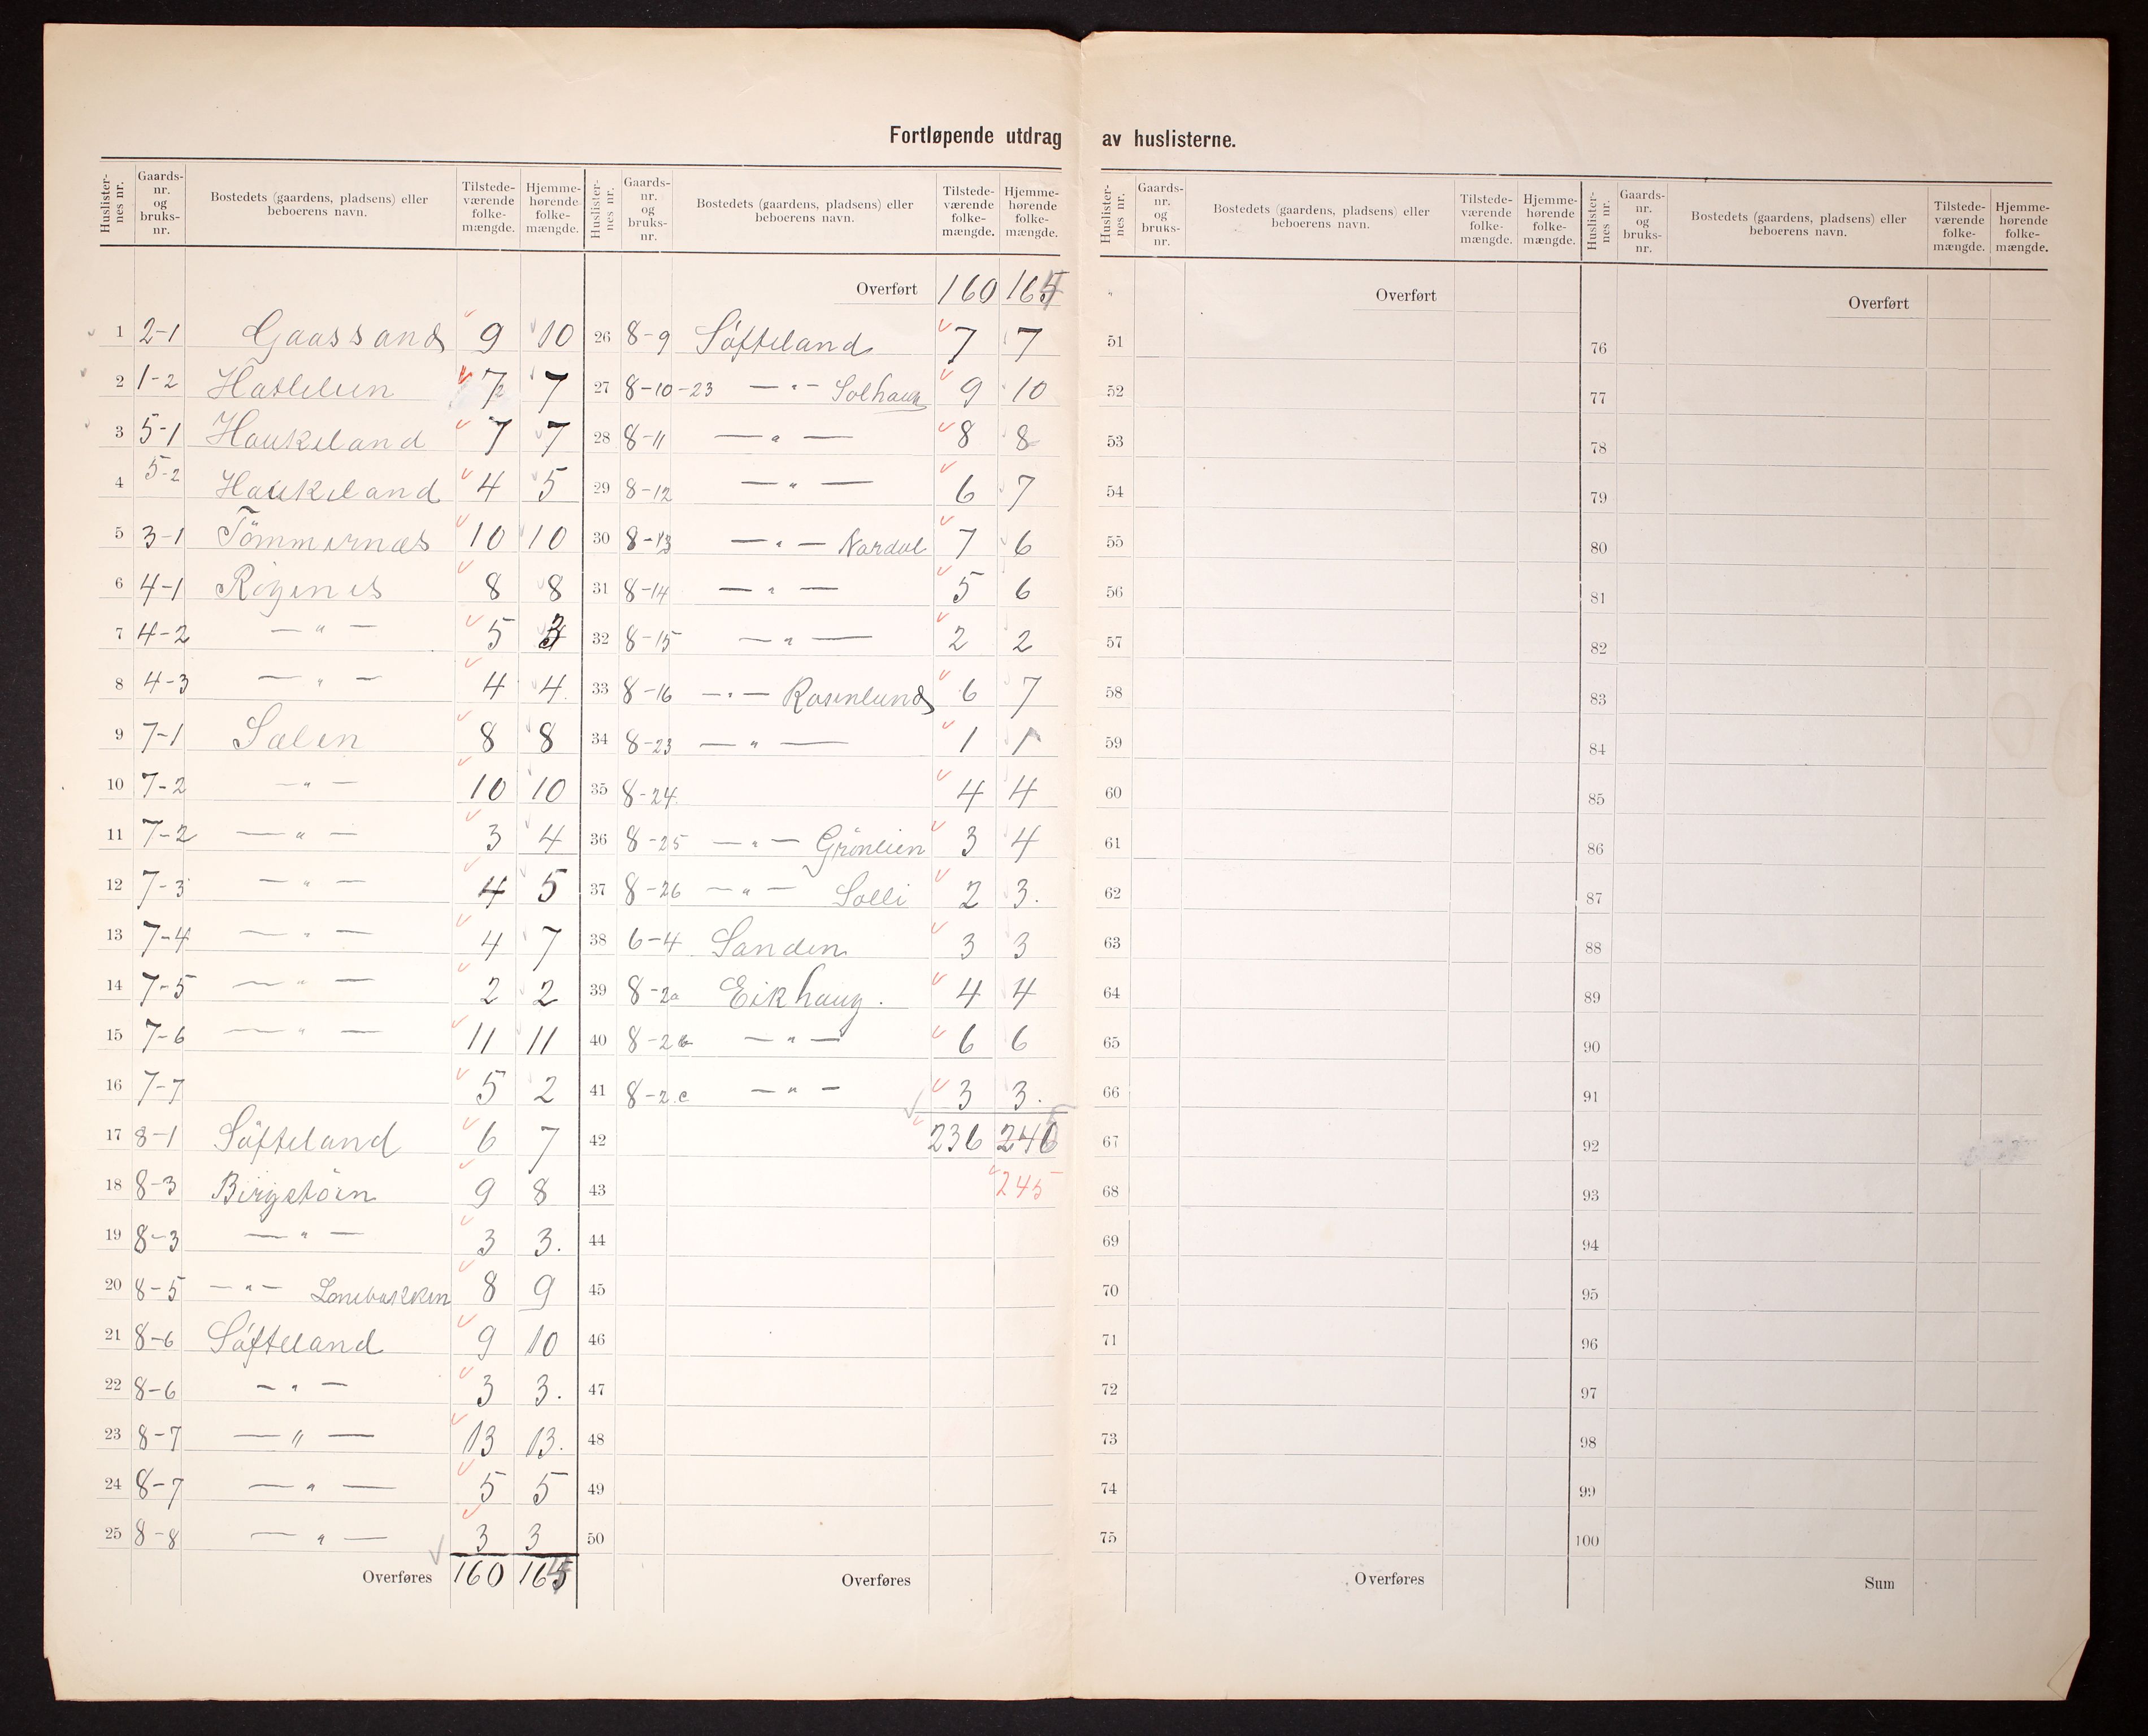 Fortløpende utdrag av huslisterne.
Huslisternes nr. Gaards-nr. og bruks-nr. Bostedets (gaardens, pladsens) eller beboerens navn. Tilstede-værende folke-mængde. Hjemme-hørende folke-mængde.
Huslisternes nr. Gaards-nr. og bruks-nr. Bostedets (gaardens, pladsens) eller beboerens navn. Tilstede-værende folke-mængde. Hjemme-hørende folke-mængde.
Huslisternes nr. Gaards-nr. og bruks-nr. Bostedets (gaardens, pladsens) eller beboerens navn. Tilstede-værende folke-mængde. Hjemme-hørende folke-mængde.
Huslisternes nr. Gaards-nr. og bruks-nr. Bostedets (gaardens, pladsens) eller beboerens navn. Tilstede-værende folke-mængde. Hjemme-hørende folke-mængde.
1 2-1 Gaassand 9 10
2 1-2 Hatlelien 7 7
3 5-1 Haukeland 7 7
4 5-2 Haukeland 4 5
5 3-1 Tömmernæs 10 10
6 4-1 Röyenes 8 8
7 4-2 — " — 5 3
8 4-3 — " — 4 4.
9 7-1 Sælen 8 8
10 7-2 — " — 10 10
11 7-2 — " — 3 4
12 7-3 — " — 4 5
13 7-4 — " — 4 7
14 7-5 — " — 2 2
15 7-6 — " — 11 11
16 7-7 5 2
17 8-1 Söfteland 6 7
18 8-3 Birgetöen 9 8
19 8-3 — " — 3 3.
20 8-5 — " — Lonebakken 8 9
21 8-6 Söfteland 9 10
22 8-6 — " — 3 3.
23 8-7 — " — 13 13.
24 8-7 — " — 5 5
25 8-8 — " — 3 3
Overføres 160 164
Overført 160 164
26 8-9 Söfteland 7 7
27 8-10-23 — " — Solhaug 9 10
28 8-11 — " — 8 8
29 8-12 — " — 6 7
30 8-13 — " — Nordal 7 6
31 8-14 — " — 5 6
32 8-15 — " — 2 2
33 8-16 — " — Rosenlund 6 7
34 8-23 — " — 1 1
35 8-24. 4 4
36 8-25 — " — Grönlien 3 4
37 8-26 — " — Solli 2 3.
38 6-4 Sanden 3 3
39 8-2a Eikhaug. 4 4
40 8-2b — " — 6 6
41 8-2.c — " — 3 3.
42 236 246
43 245
44
45
46
47
48
49
50
Overføres
Overført
51
52
53
54
55
56
57
58
59
60
61
62
63
64
65
66
67
68
69
70
71
72
73
74
75
Overføres
Overført
76
77
78
79
80
81
82
83
84
85
86
87
88
89
90
91
92
93
94
95
96
97
98
99
100
Sum